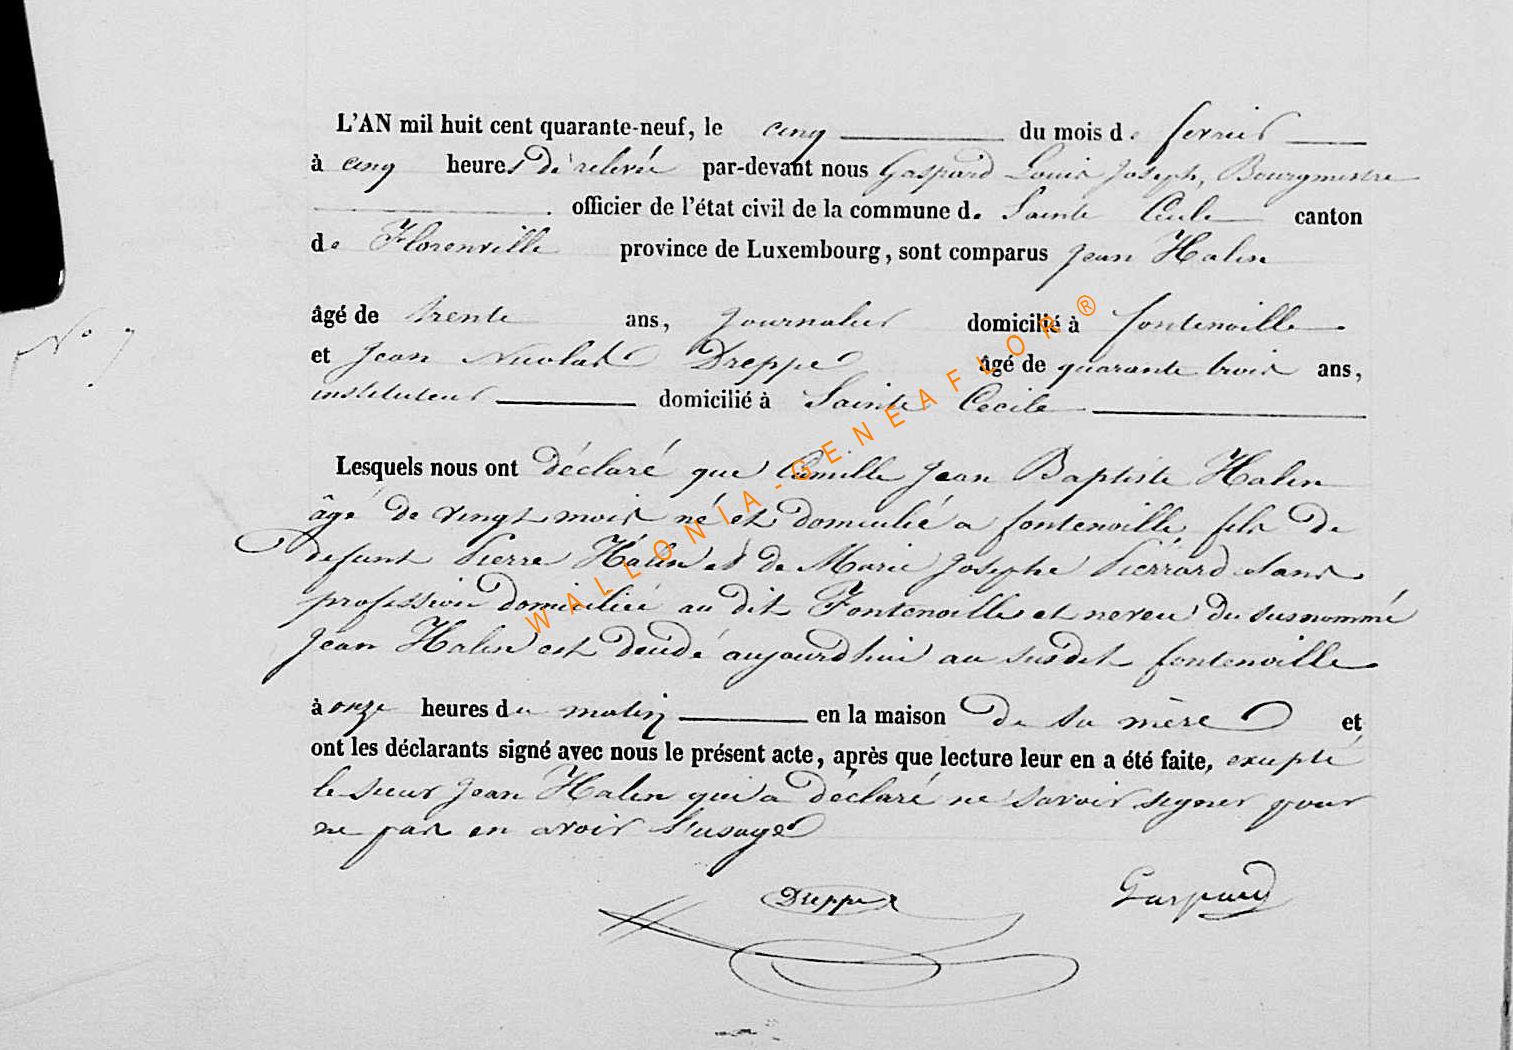 L'AN mil huit cent quarante-neuf, le cinq du mois de fevrier
à cinq heures de relevée par-devant nous Gaspard Louis Joseph, Bourgmestre
officier de l'état civil de la commune de Sainte Cecile canton
de Florenville province de Luxembourg, sont comparus Jean Halin
âgé de trente ans, journalier domicilié à fontenoille
N° 7
et Jean Nicolas Dreppe âgé de quarante trois ans,
instituteur domicilié à Sainte Cecile
Lesquels nous ont déclaré que Camille Jean Baptiste Halin
âgé de vingt mois né et domicilié a fontenoille, fils de
defunt Pierre Halin et de Marie Josephe Pierrard sans
profession domiciliée au dit Fontenoille et neveu du susnommé
Jean Halin est décédé aujourdhui au susdit fontenoille
à onze heures du matin en la maison de sa mère et
ont les déclarants signé avec nous le présent acte, après que lecture leur en a été faite, excepté
le sieur Jean Halin qui a déclaré ne savoir signer pour
ne pas en avoir l'usage
Dreppe Gaspard
WALLONIA-GENEAFLOR®